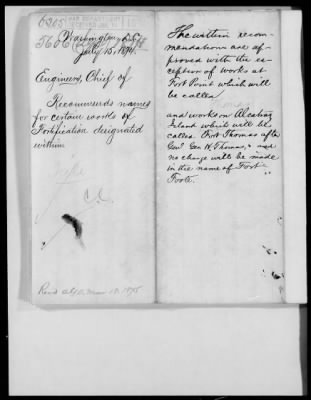 6265
5606
Washington, D.C.
July 15, 1874.
Engineers, Chief of
Recommends names
for certain works of
Fortification designated
within
File
Recd A.G.O. Mar 18, 1875
The within recom-
mendations are ap-
proved with the ex-
ception of works at
Fort Point which will
be called
and works on Alcatraz
Island which will be
called Fort Thomas after
Genl. Geo. H. Thomas, and
no change will be made
in the name of Fort
Foote.